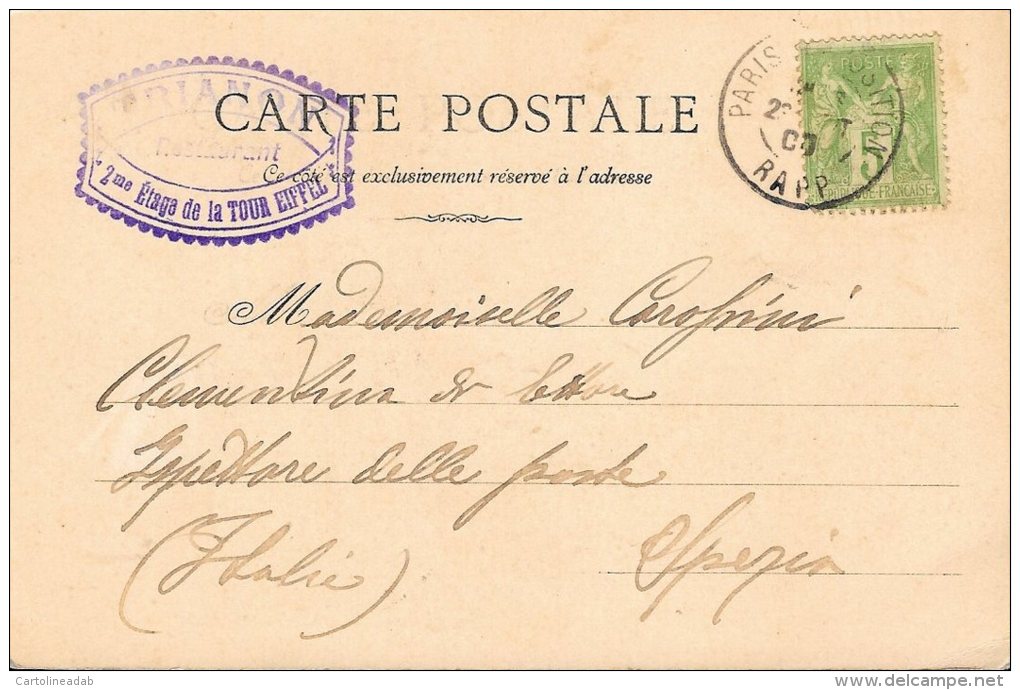 TRIANON
Restaurant
2me Étage de la TOUR EIFFEL
CARTE POSTALE
Ce côté est exclusivement réservé à l'adresse
POSTE
5
RÉPUBLIQUE FRANÇAISE
PARIS EXPOSITION
00
RAPP
Mademoiselle
Clementina di Ettore
Ispettore delle poste
(Italie) Spezia
Cartolineadab
delcampe.net